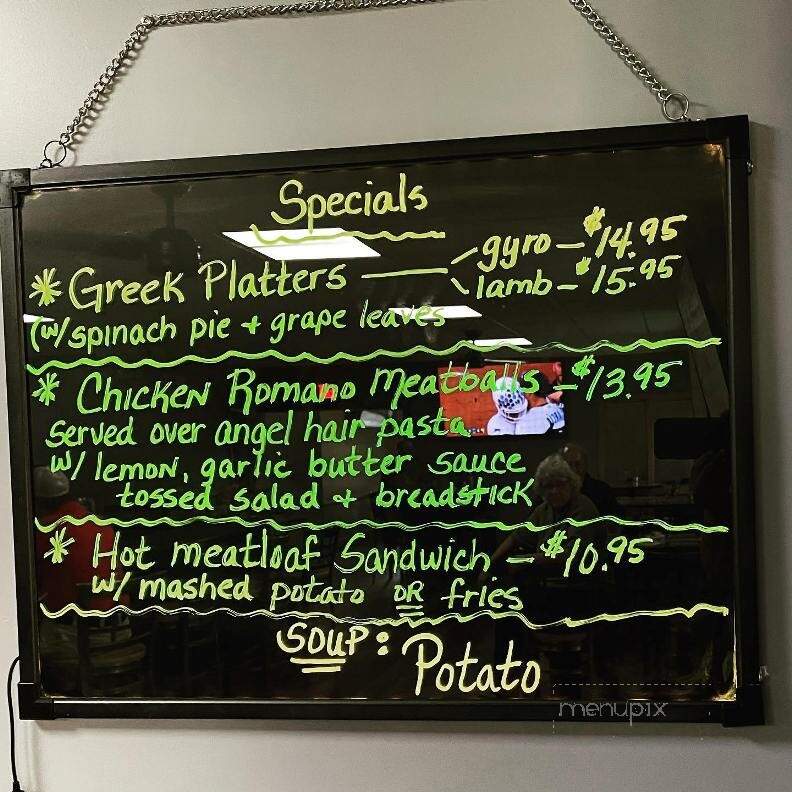 Specials
* Greek Platters — gyro – $14.95
lamb – $15.95
(w/spinach pie + grape leaves
* Chicken Romano Meatballs – $13.95
Served over angel hair pasta
w/ lemon, garlic butter sauce
tossed salad + breadstick
* Hot meatloaf Sandwich – $10.95
w/ mashed potato OR fries
SOUP: Potato
menupix